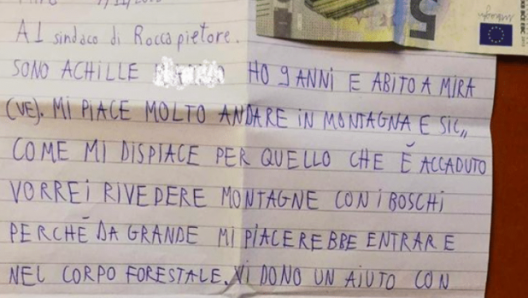 AL sindaco di Roccapietore.
SONO ACHILLE HO 9 ANNI E ABITO A MIRA
(VE). MI PIACE MOLTO ANDARE IN MONTAGNA E SIC,,
COME MI DISPIACE PER QUELLO CHE È ACCADUTO
VORREI RIVEDERE MONTAGNE CON I BOSCHI
PERCHÈ DA GRANDE MI PIACEREBBE ENTRARE
NEL CORPO FORESTALE. VI DONO UN AIUTO CON
5